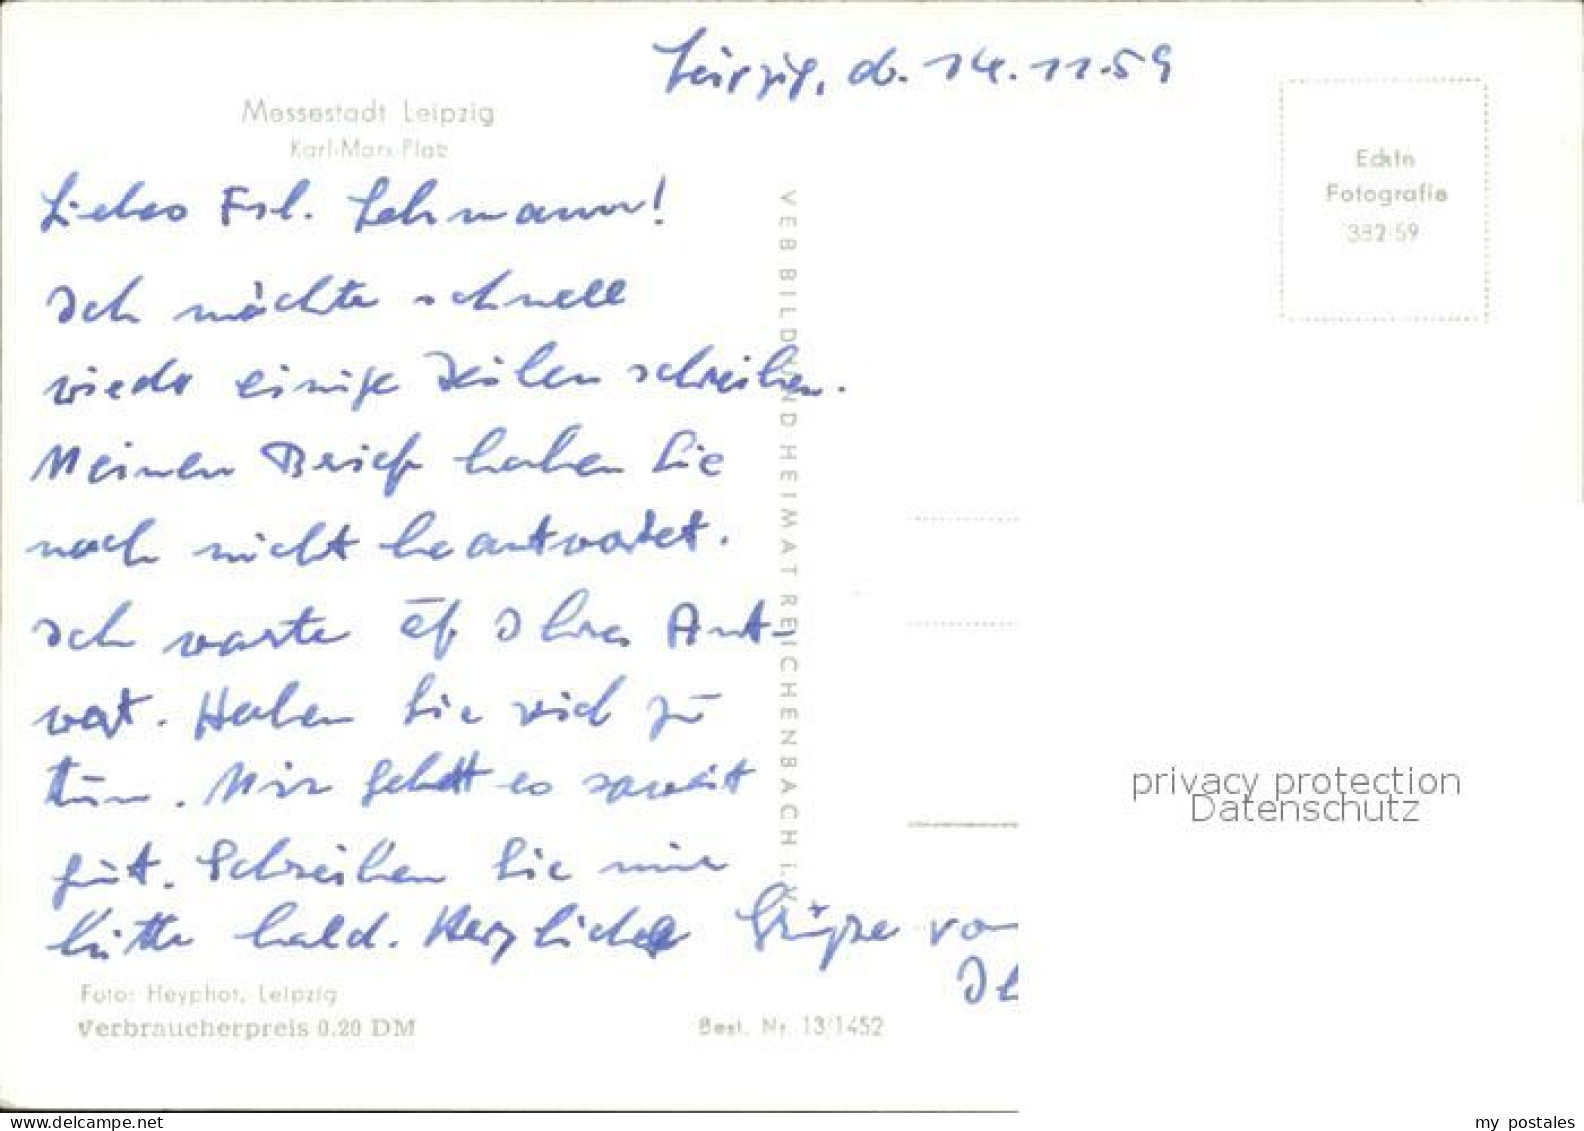 Leipzig, d. 14.11.59
Messestadt Leipzig
Karl-Marx-Platz
Liebes Frl. Lehmann!
Ich möchte schnell
wieder einige Zeilen schreiben.
Meinen Brief haben Sie
noch nicht beantwortet.
Ich warte auf Ihre Ant-
wort. Haben Sie viel zu
tun. Mir geht es soweit
gut. Schreiben Sie mir
bitte bald. Herzliche Grüße vo
Foto: Heyphot, Leipzig
Verbraucherpreis 0.20 DM
Best. Nr. 13/1452
VEB BILD UND HEIMAT REICHENBACH i. V.
Echte
Fotografie
382/59
privacy protection
Datenschutz
www.delcampe.net
my_postales